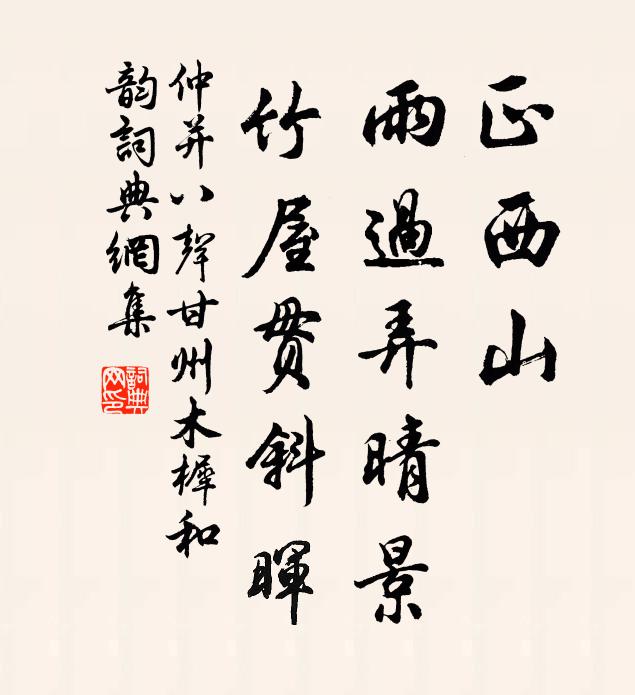 正西山
雨過弄晴景
竹屋貫斜暉
仲并八聲甘州木樨和
韵詞典網集
詞典網印